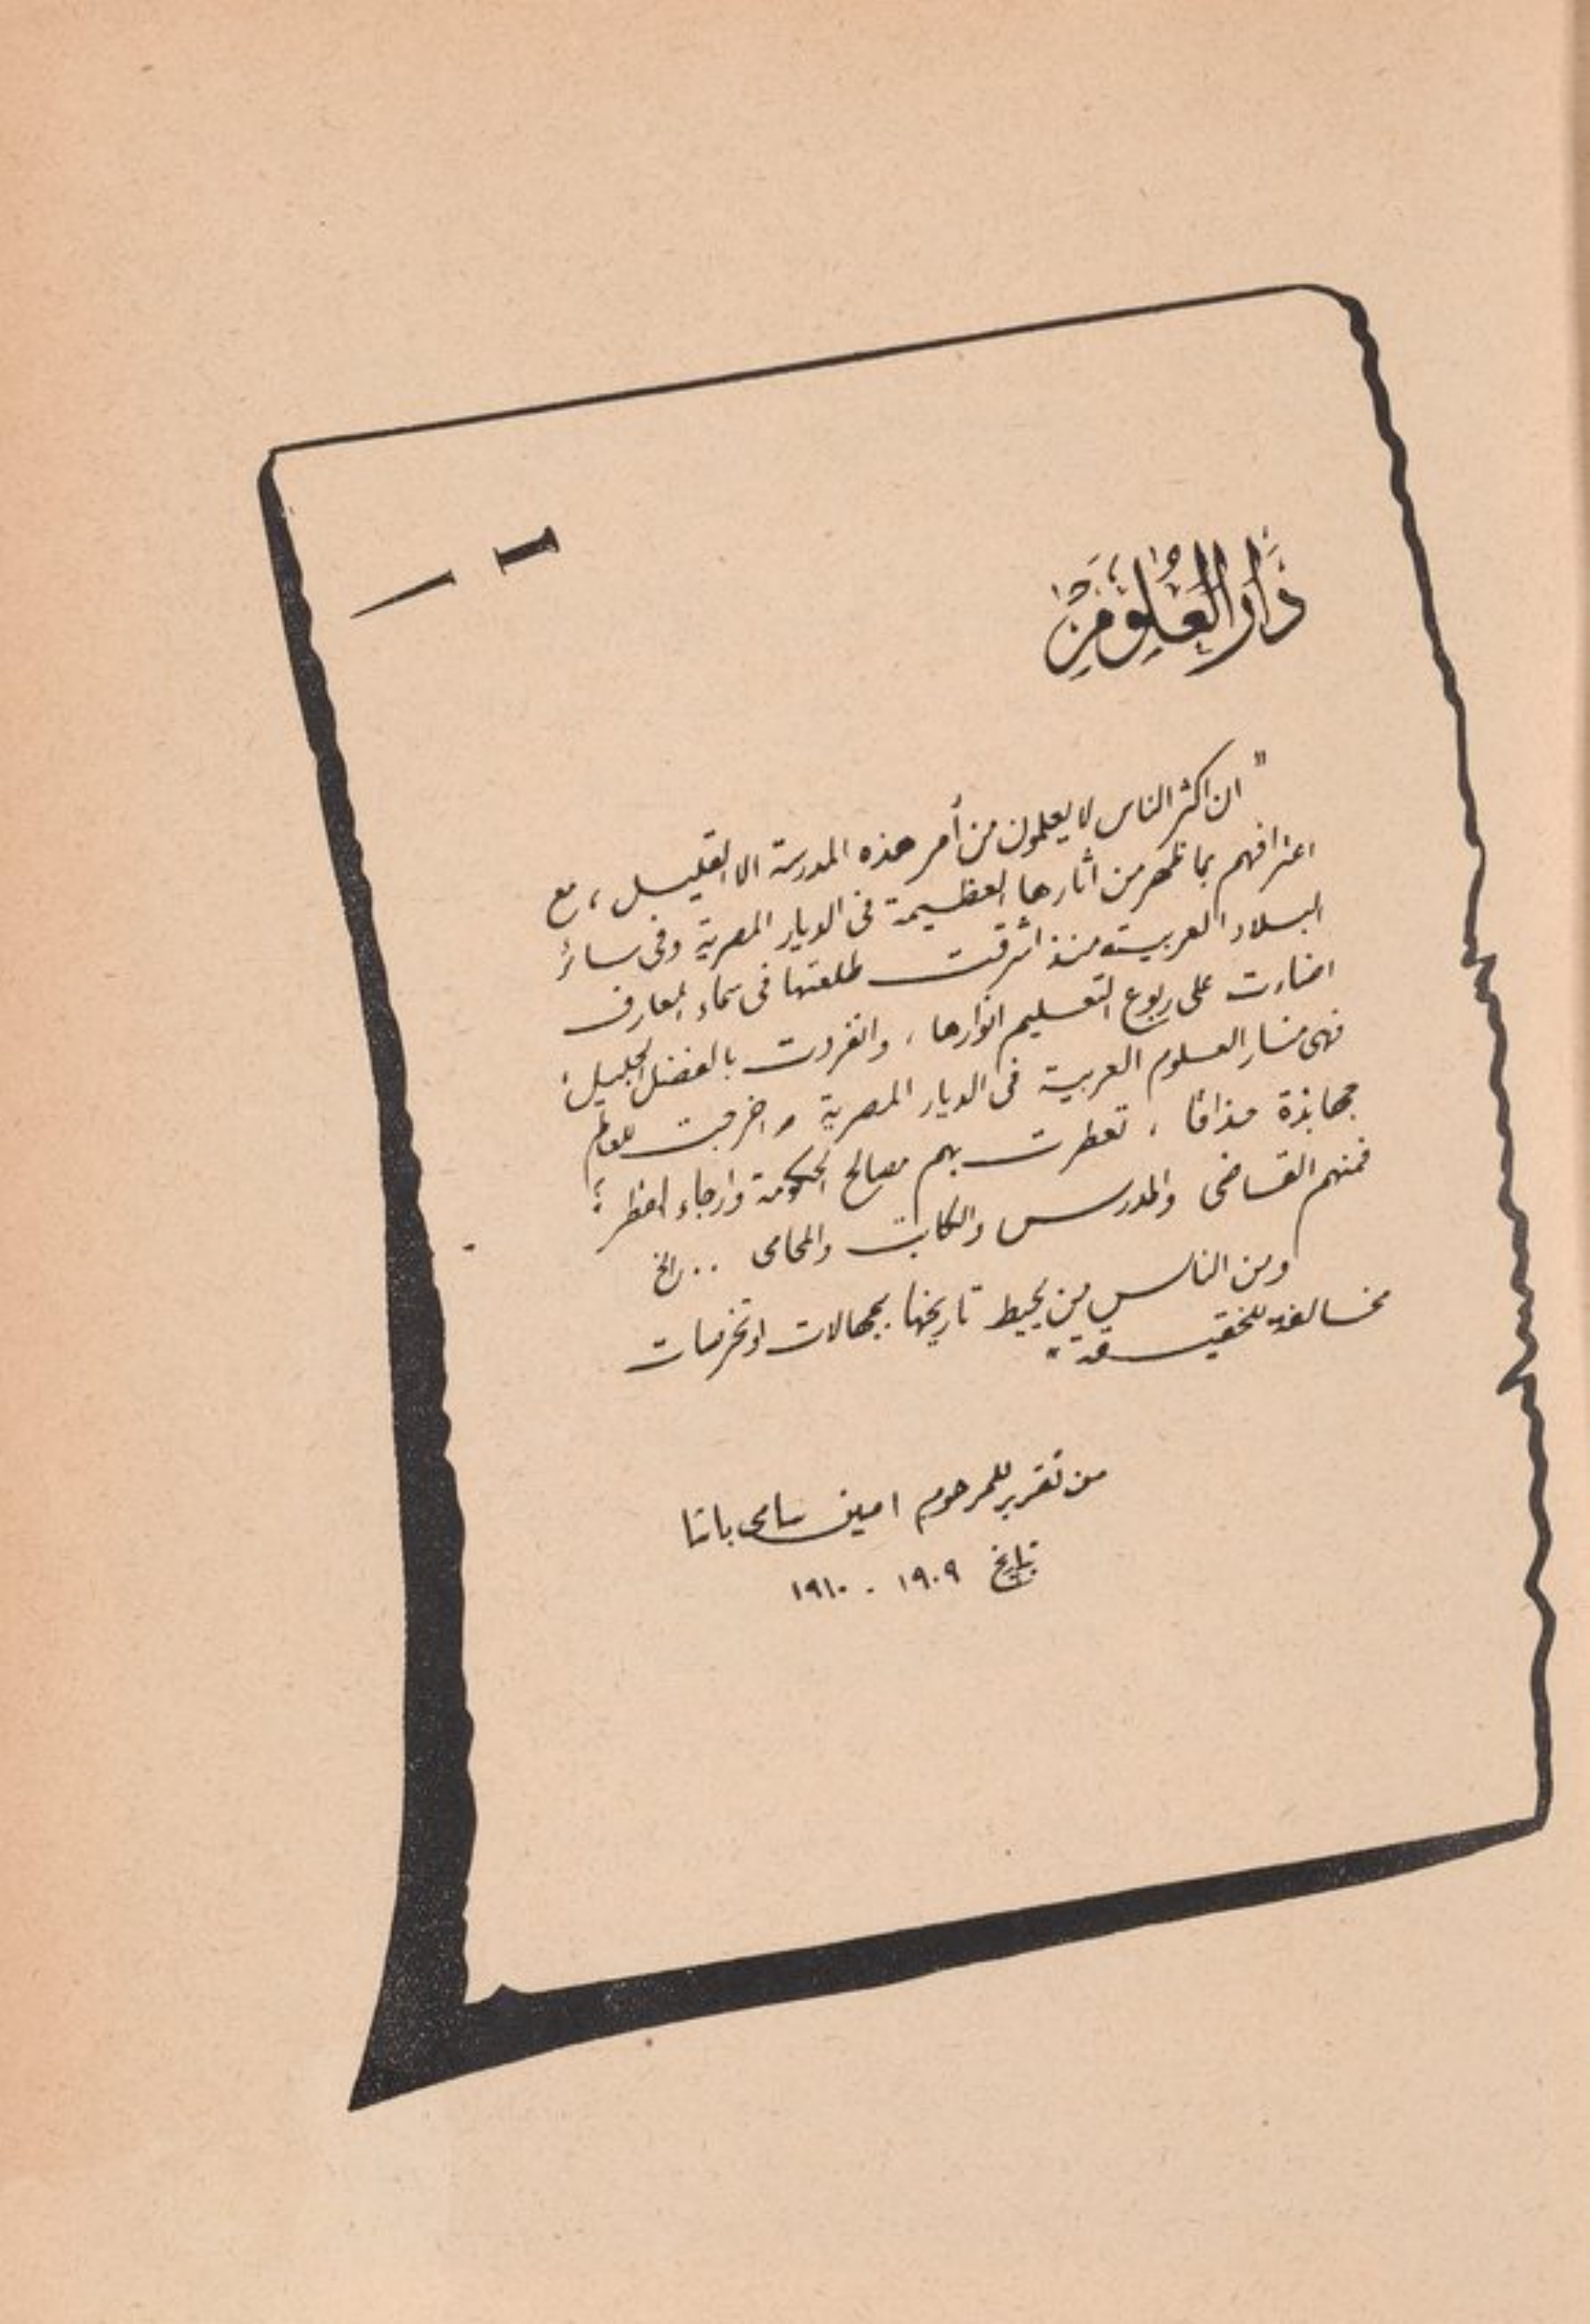 دَارُ العُلُوم
" ان اكثر الناس لا يعلمون من أمر هذه المدرسة الا القليل ، مع
اعترافهم بما ظهر من اثارها العظيمة فى الديار المصرية وفى سائر
البلاد العربية منذ اشرقت طلعتها فى سماء المعارف
اضاءت على ربوع التعليم انوارها ، وانفردت بالفضل الجليل ؛
فهى منار العلوم العربية فى الديار المصرية واخرجت للعالم
جهابذة حذاقا ، تعطرت بهم مصالح الحكومة وارجاء القطر ؛
فمنهم القاضى والمدرس والكاتب والمحامى .. الخ
ومن الناس من يحيط تاريخها بجهالات او تخرصات
مخالفة للحقيقة "
من تقرير للمرحوم امين سامى باشا
بتاريخ ١٩٠٩ - ١٩١٠